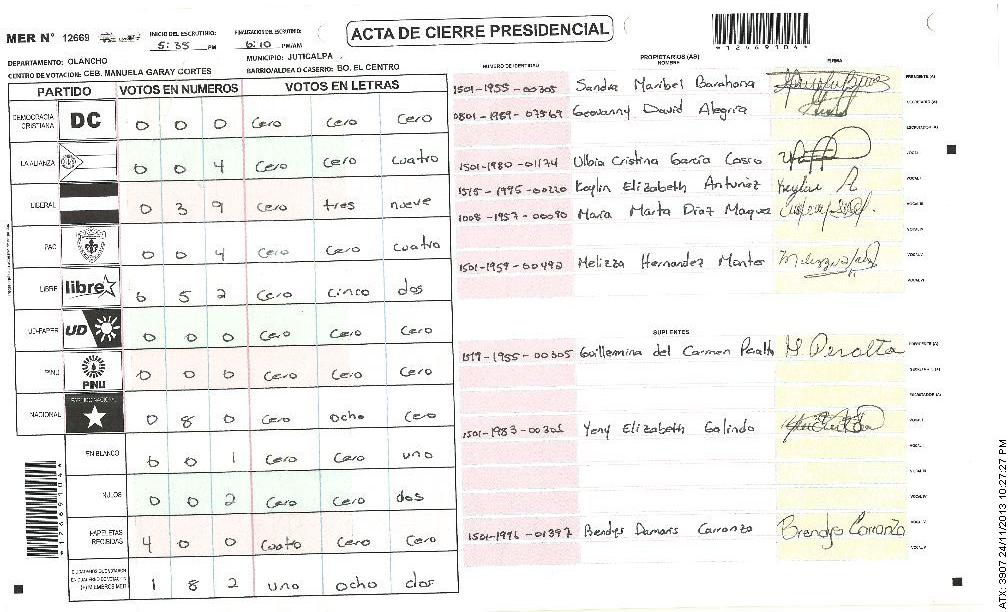 MER N° 12669
INICIO DEL ESCRUTINIO: 5:35 PM
FINALIZACION DEL ESCRUTINIO: 6:10 PM/AM
ACTA DE CIERRE PRESIDENCIAL
*12669104*
DEPARTAMENTO: OLANCHO
MUNICIPIO: JUTICALPA
CENTRO DE VOTACION: CEB. MANUELA GARAY CORTES
BARRIO/ALDEA O CASERIO: BO. EL CENTRO
PARTIDO VOTOS EN NUMEROS VOTOS EN LETRAS
DEMOCRACIA CRISTIANA DC 0 0 0 Cero Cero Cero
LA ALIANZA 0 0 4 Cero Cero Cuatro
LIBERAL 0 3 9 Cero tres nueve
PAC 0 0 4 Cero Cero Cuatro
LIBRE libre 0 5 2 Cero Cinco dos
UD-FAPER UD 0 0 0 Cero Cero Cero
PINU PINU 0 0 0 Cero Cero Cero
NACIONAL PARTIDO NACIONAL 0 8 0 Cero Ocho Cero
EN BLANCO 0 0 1 Cero Cero uno
NULOS 0 0 2 Cero Cero dos
PAPELETAS RECIBIDAS 4 0 0 Cuatro Cero Cero
1 8 2 uno ocho dos
NUMERO DE IDENTIDAD
PROPIETARIOS (AS)
NOMBRE
FIRMA
1501-1955-00305 Sandra Maribel Barahona PRESIDENTE (A)
0801-1989-07569 Geovanny David Alegria SECRETARIO (A)
ESCRUTADOR (A)
1501-1980-01174 Ulbia Cristina Garcia Casco VOCAL I
1515-1995-00220 Keylin Elizabeth Antunez Keylin A
1008-1957-00090 Maria Marta Diaz Maquez VOCAL III
VOCAL IV
1501-1959-00492 Melizza Hernandez Montes VOCAL V
VOCAL VI
SUPLENTES
1519-1955-00305 Guillermina del Carmen Peralta M. Peralta PRESIDENTE (A)
SECRETARIO (A)
ESCRUTADOR (A)
1501-1983-00305 Yeny Elizabeth Galindo VOCAL I
VOCAL IV
1501-1976-01397 Brendys Damaris Carranza Brendys Carranza VOCAL V
ATX: 3907 24/11/2013 10:27:27 PM